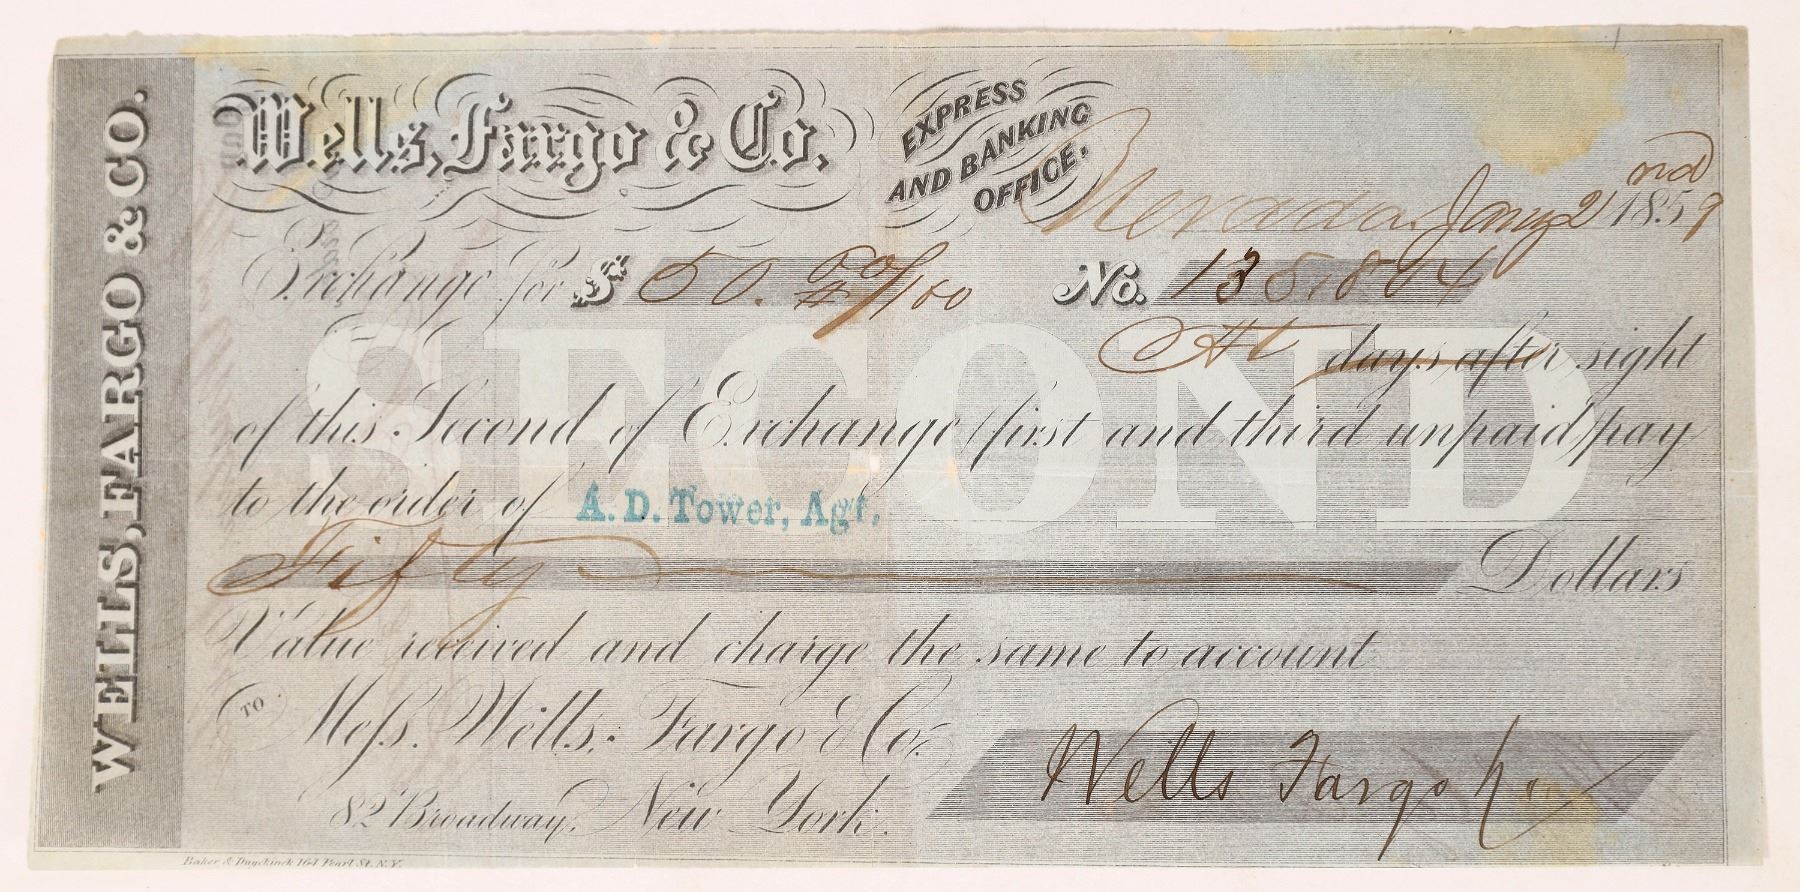 WELLS, FARGO & CO.
Wells, Fargo & Co.
EXPRESS
AND BANKING
OFFICE.
Nevada Jany 2nd 1859
Exchange for $ 50. /100 No.
SECOND
At days after sight
of this Second of Exchange (first and third unpaid) pay
to the order of A. D. Tower, Agt.
Fifty Dollars
Value received and charge the same to account
TO Mess. Wells, Fargo & Co.
82 Broadway, New York.
Wells Fargo & Co
Baker & Duyckinck 164 Pearl St. N.Y.